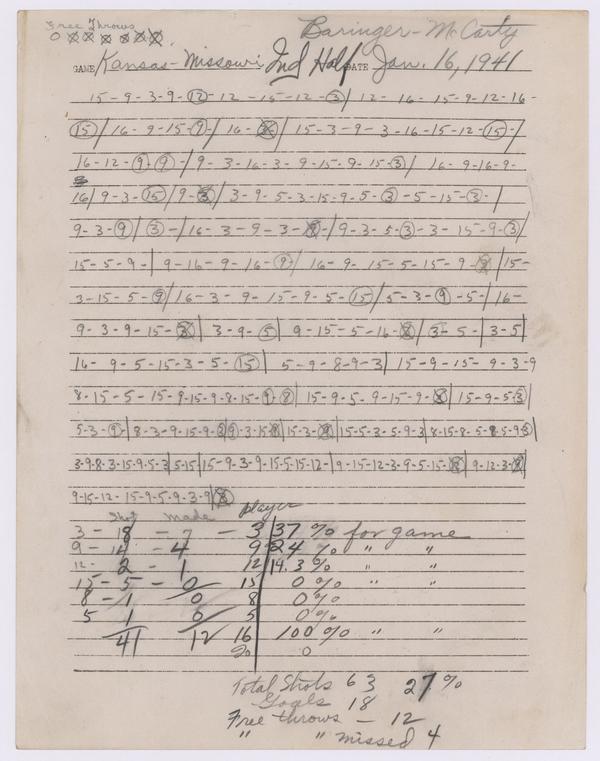 Free Throws
Baringer - McCarty
GAME Kansas - Missouri 2nd Half DATE Jan. 16, 1941
15 - 9 - 3 - 9 - 12 - 12 - 15 - 12 - 3 / 12 - 16 - 15 - 9 - 12 - 16 -
15 / 16 - 9 - 15 - 9 / 16 - 3 / 15 - 3 - 9 - 3 - 16 - 15 - 12 - 15 - /
16 - 12 - 9 - 9 - / 9 - 3 - 16 - 3 - 9 - 15 - 9 - 15 - 3 / 16 - 9 - 16 - 9 -
16 / 9 - 3 - 15 / 9 - 3 / 3 - 9 - 5 - 3 - 15 - 9 - 5 - 3 - 5 - 15 - 3 - /
9 - 3 - 9 / 3 - / 16 - 3 - 9 - 3 - 9 - / 9 - 3 - 5 - 3 - 3 - 15 - 9 - 3 /
15 - 5 - 9 - / 9 - 16 - 9 - 16 - 9 / 16 - 9 - 15 - 5 - 15 - 9 - / 15 -
3 - 15 - 5 - 9 / 16 - 3 - 9 - 15 - 9 - 5 - 15 / 5 - 3 - 9 - 5 - / 16 -
9 - 3 - 9 - 15 - 3 / 3 - 9 - 5 / 9 - 15 - 5 - 16 - 8 / 3 - 5 - / 3 - 5 /
16 - 9 - 5 - 15 - 3 - 5 - 15 / 5 - 9 - 8 - 9 - 3 / 15 - 9 - 15 - 9 - 3 - 9
8 - 15 - 5 - 15 - 9 - 15 - 9 - 8 - 15 - 9 - 8 / 15 - 9 - 5 - 9 - 15 - 9 - 8 / 15 - 9 - 5 - 3 /
5 - 3 - 9 - / 8 - 3 - 9 - 15 - 9 - 3 / 9 - 3 - 15 - 8 / 15 - 3 - 9 / 15 - 5 - 3 - 5 - 9 - 3 / 8 - 15 - 8 - 5 - 8 - 5 - 9 - 3 /
3 - 9 - 8 - 3 - 15 - 9 - 5 - 3 / 5 - 15 / 15 - 9 - 3 - 9 - 15 - 5 - 15 - 12 - / 9 - 15 - 12 - 3 - 9 - 5 - 15 - 8 / 9 - 12 - 3 - 8 /
9 - 15 - 12 - 15 - 9 - 5 - 9 - 3 - 9 / 8
Shot Made player
3 - 18 - 7 - 3 37 % for game
9 - 14 - 4 9 24 % " "
12 - 2 - 1 12 14.3 % " "
15 - 5 - 0 15 0 % " "
8 - 1 0 8 0 %
5 1 0 5 0 %
41 12 16 100 % " "
% 0
Total Shots 63 27 %
Goals 18
Free throws - 12
" " missed 4